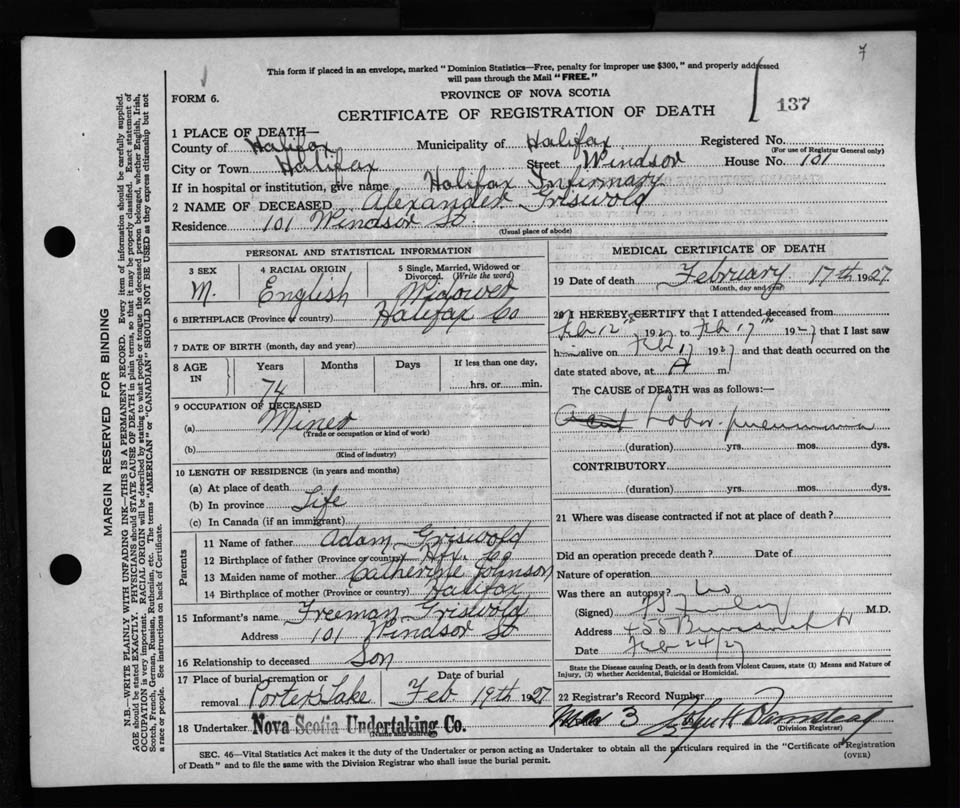 7
This form if placed in an envelope, marked "Dominion Statistics—Free, penalty for improper use $300," and properly addressed
will pass through the Mail "FREE."
FORM 6.
PROVINCE OF NOVA SCOTIA
CERTIFICATE OF REGISTRATION OF DEATH
137
1 PLACE OF DEATH—
County of Halifax Municipality of Halifax Registered No.
(For use of Registrar General only)
City or Town Halifax Street Windsor House No. 101
If in hospital or institution, give name Halifax Infirmary
2 NAME OF DECEASED Alexander Griswold
Residence 101 Windsor St
(Usual place of abode)
PERSONAL AND STATISTICAL INFORMATION
3 SEX
M.
4 RACIAL ORIGIN
English
5 Single, Married, Widowed or
Divorced. (Write the word)
Widower
6 BIRTHPLACE (Province or country) Halifax Co
7 DATE OF BIRTH (month, day and year)
8 AGE IN
Years
74
Months
Days
If less than one day,
hrs. or min.
9 OCCUPATION OF DECEASED
(a) Miner
(Trade or occupation or kind of work)
(b)
(Kind of industry)
10 LENGTH OF RESIDENCE (in years and months)
(a) At place of death
(b) In province Life
(c) In Canada (if an immigrant)
Parents
11 Name of father Adam Griswold
12 Birthplace of father (Province or country) Hfx. Co
13 Maiden name of mother Catherine Johnson
14 Birthplace of mother (Province or country) Halifax
15 Informant's name Freeman Griswold
Address 101 Windsor St
16 Relationship to deceased Son
17 Place of burial, cremation or
removal Porters Lake
Date of burial
Feb 19th 1927
18 Undertaker Nova Scotia Undertaking Co.
(Name and address)
MEDICAL CERTIFICATE OF DEATH
19 Date of death February 17th 1927.
(Month, day and year)
20 I HEREBY CERTIFY that I attended deceased from
Feb 12th 1927 to Feb 17th 1927 that I last saw
h alive on Feb 17 1927 and that death occurred on the
date stated above, at A m.
The CAUSE of DEATH was as follows:—
Lobar pneumonia
(duration) yrs. mos. dys.
CONTRIBUTORY
(duration) yrs. mos. dys.
21 Where was disease contracted if not at place of death?
Did an operation precede death? Date of
Nature of operation
Was there an autopsy? No
(Signed) M.D.
Address
Date Feb 24/27
State the Disease causing Death, or in death from Violent Causes, state (1) Means and Nature of
Injury, (2) whether Accidental, Suicidal or Homicidal.
22 Registrar's Record Number
3
(Division Registrar)
SEC. 46—Vital Statistics Act makes it the duty of the Undertaker or person acting as Undertaker to obtain all the particulars required in the "Certificate of Registration
of Death" and to file the same with the Division Registrar who shall issue the burial permit.
(OVER)
MARGIN RESERVED FOR BINDING
N.B.—WRITE PLAINLY WITH UNFADING INK—THIS IS A PERMANENT RECORD. Every item of information should be carefully supplied.
AGE should be stated EXACTLY. PHYSICIANS should STATE CAUSE OF DEATH in plain terms, so that it may be properly classified. Exact statement of
OCCUPATION is very important. RACIAL ORIGIN will be described by stating to what people or tongue the deceased person belonged, whether English, Irish,
Scotch, French, German, Russian, Ruthenian, etc. The terms "AMERICAN" or "CANADIAN" SHOULD NOT BE USED as they express citizenship but not
a race or people. See instructions on back of Certificate.